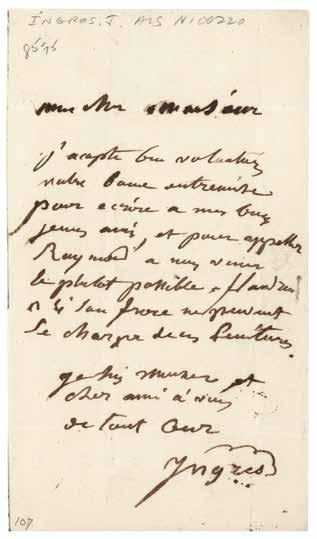 INGRES. J. ALS N100220
mon cher monsieur
j'acepte bien volontiers
votre bonne entremise
pour ecrire a mes bons
jeunes amis, et pour appeller
Raymond a nous venir
le plutot possible. flandrin
ni son frere ne peuvent
se charger de ces peintures.
je suis Monsieur et
cher ami a vous
de tout Coeur
Ingres
107